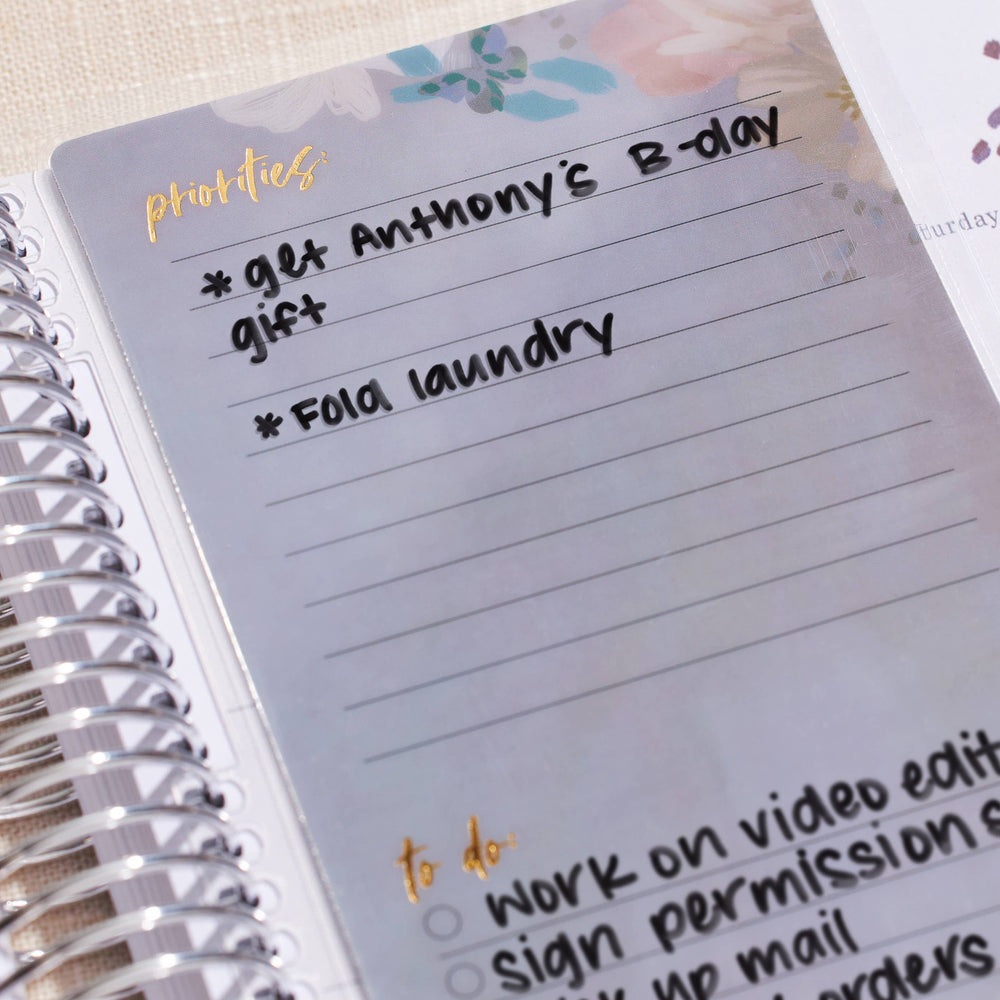 priorities:
*get Anthony's B-day
gift
*Fold laundry
turday
to do:
work on video edit
sign permission s
up mail
orders